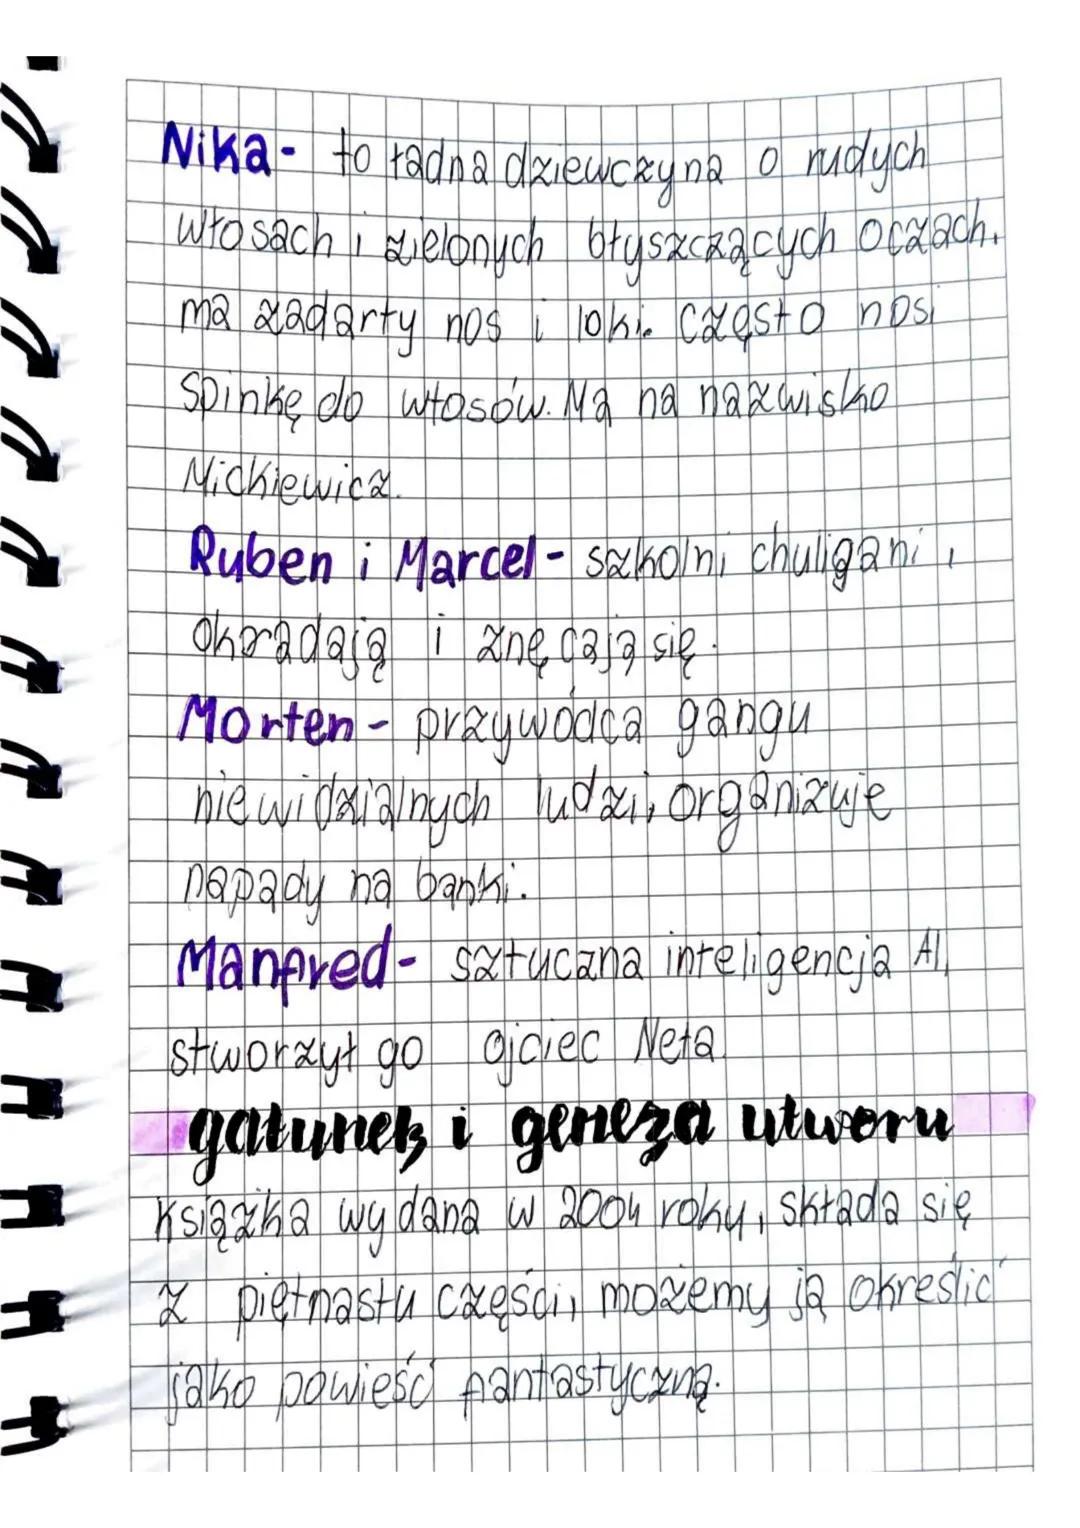 Nika - to ładna dziewczyna o rudych
włosach i zielonych błyszczących oczach.
ma zadarty nos i loki. Często nosi
spinkę do włosów. Ma na nazwisko
Mickiewicz.
Ruben i Marcel - szkolni chuligani,
okradają i znęcają się.
Morten - przywódca gangu
niewidzialnych ludzi, organizuje
napady na banki.
Manfred - sztuczna inteligencja AI,
stworzył go ojciec Neta.
gatunek i geneza utworu
Książka wydana w 2004 roku, składa się
z piętnastu części, możemy ją określić
jako powieść fantastyczną.